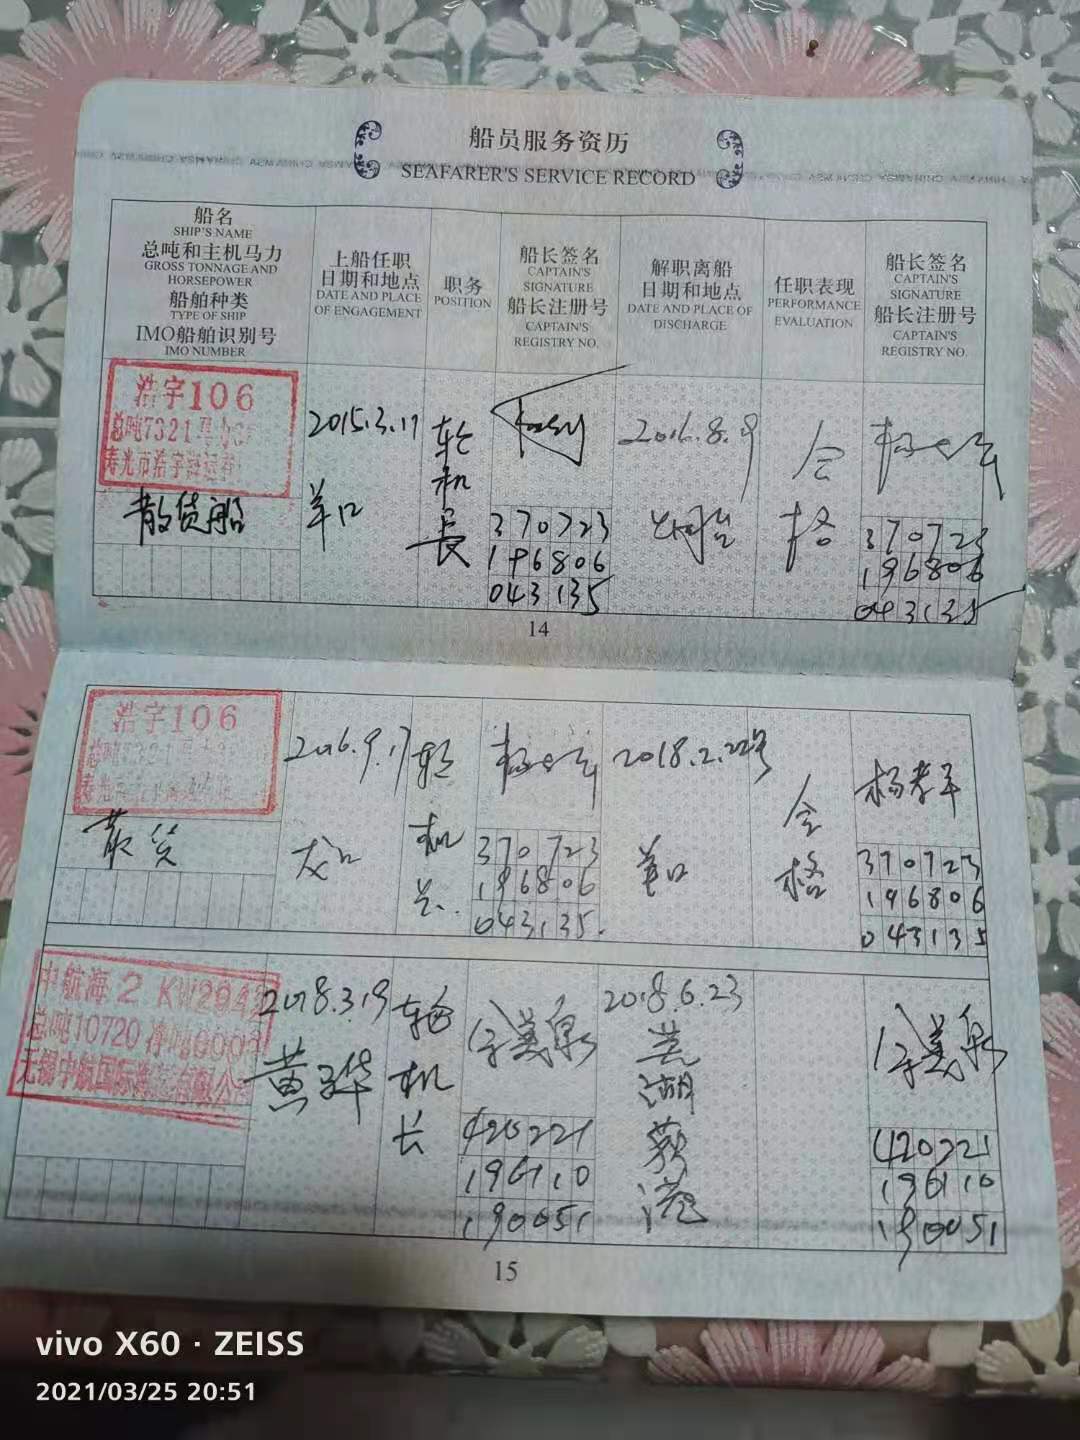 船员服务资历
SEAFARER'S SERVICE RECORD
船名
SHIP'S NAME
总吨和主机马力
GROSS TONNAGE AND
HORSEPOWER
船舶种类
TYPE OF SHIP
IMO船舶识别号
IMO NUMBER
上船任职
日期和地点
DATE AND PLACE
OF ENGAGEMENT
职务
POSITION
船长签名
CAPTAIN'S
SIGNATURE
船长注册号
CAPTAIN'S
REGISTRY NO.
解职离船
日期和地点
DATE AND PLACE OF
DISCHARGE
任职表现
PERFORMANCE
EVALUATION
船长签名
CAPTAIN'S
SIGNATURE
船长注册号
CAPTAIN'S
REGISTRY NO.
浩宇106
总吨7321
寿光市浩宇海运有
散货船
2015.3.17
羊口
轮机長
370723
196806
043135
2016.8.9
合格
370723
196806
043135
14
浩宇106
散货
2016.9.17
龙口
轮机长
370723
196806
043135
2018.2.22号
羊口
合格
杨孝平
370723
196806
043135
中航海2 KW294
总吨10720 净吨6003
无锡中航国际海运有限公
2018.3.19
黄骅
轮机长
420221
196110
190051
2018.6.23
芜湖
港
420221
196110
190051
15
vivo X60 · ZEISS
2021/03/25 20:51